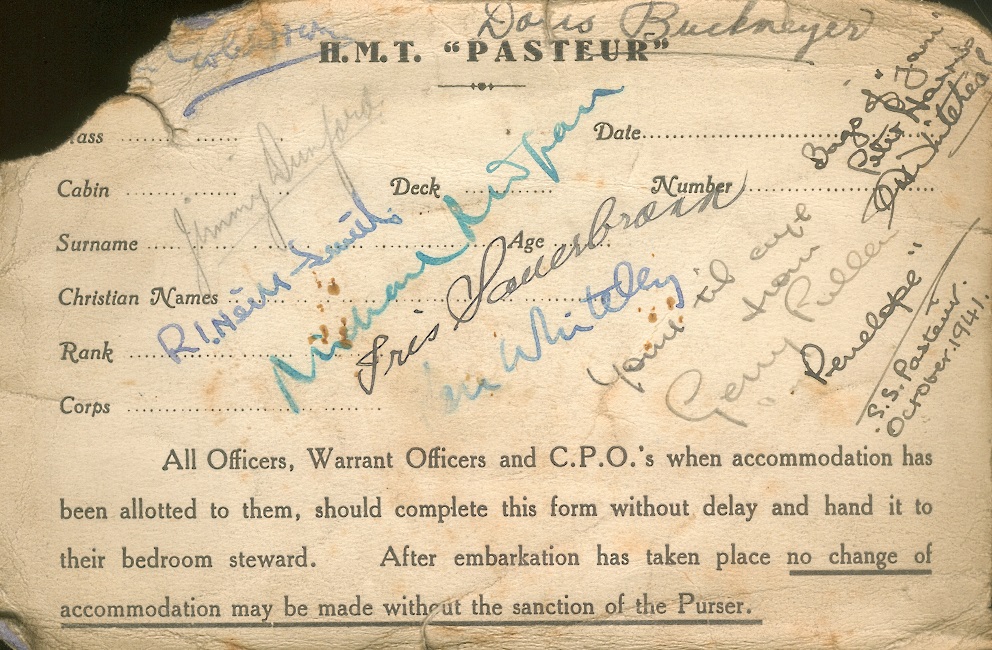 Doris Buckmeyer
H.M.T. "PASTEUR"
ass ........ Date........
Cabin ........ Deck ........ Number ........
Surname ........ Age ........
Christian Names ........
Rank ........
Corps ........
Jimmy Dunford.
R. I. Neill-Smith
Iris Sauerbrann
Whiteley
Gerry Pullen
Penelope"
S.S. Pasteur.
October. 1941.
All Officers, Warrant Officers and C.P.O.'s when accommodation has
been allotted to them, should complete this form without delay and hand it to
their bedroom steward. After embarkation has taken place no change of
accommodation may be made without the sanction of the Purser.